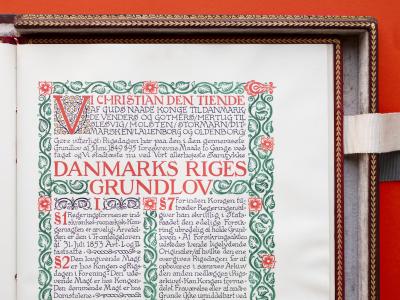 VI CHRISTIAN DEN TIENDE
AF GUDS NAADE KONGE TIL DANMARK,
DE VENDERS OG GOTHERS, HERTUG TIL
SLESVIG, HOLSTEN, STORMARN, DIT-
MARSKEN, LAUENBORG OG OLDENBORG,
Gøre vitterligt: Rigsdagen har paa den i den gennemsete
Grundlov af 5. Juni 1849 § 95 foreskrevne Maade to Gange ved-
taget og Vi stadfæste nu ved Vort allerhøjeste Samtykke
DANMARKS RIGES
GRUNDLOV.
I
§1 Regeringsformen er ind-
skrænket-monarkisk. Kon-
gemagten er arvelig. Arveføl-
gen er den i Tronfølgeloven
af 31. Juli 1853 Art. I og II
fastsatte.
§2 Den lovgivende Magt
er hos Kongen og Rigs-
dagen i Forening. Den udø-
vende Magt er hos Kongen.
Den dømmende Magt er hos
Domstolene.
§7 Forinden Kongen til-
træder Regeringen, af-
giver han skriftlig i Stats-
raadet den edelige Forsik-
ring ubrødelig at holde Grund-
loven. Af Forsikringsakten
udstedes tvende ligelydende
Originaler, af hvilke den ene
overgives Rigsdagen for at
opbevares i sammes Arkiv,
den anden nedlægges i Rigs-
arkivet. Kan Kongen formed-
elst Fraværelse eller af andre
Grunde ikke umiddelbart ved